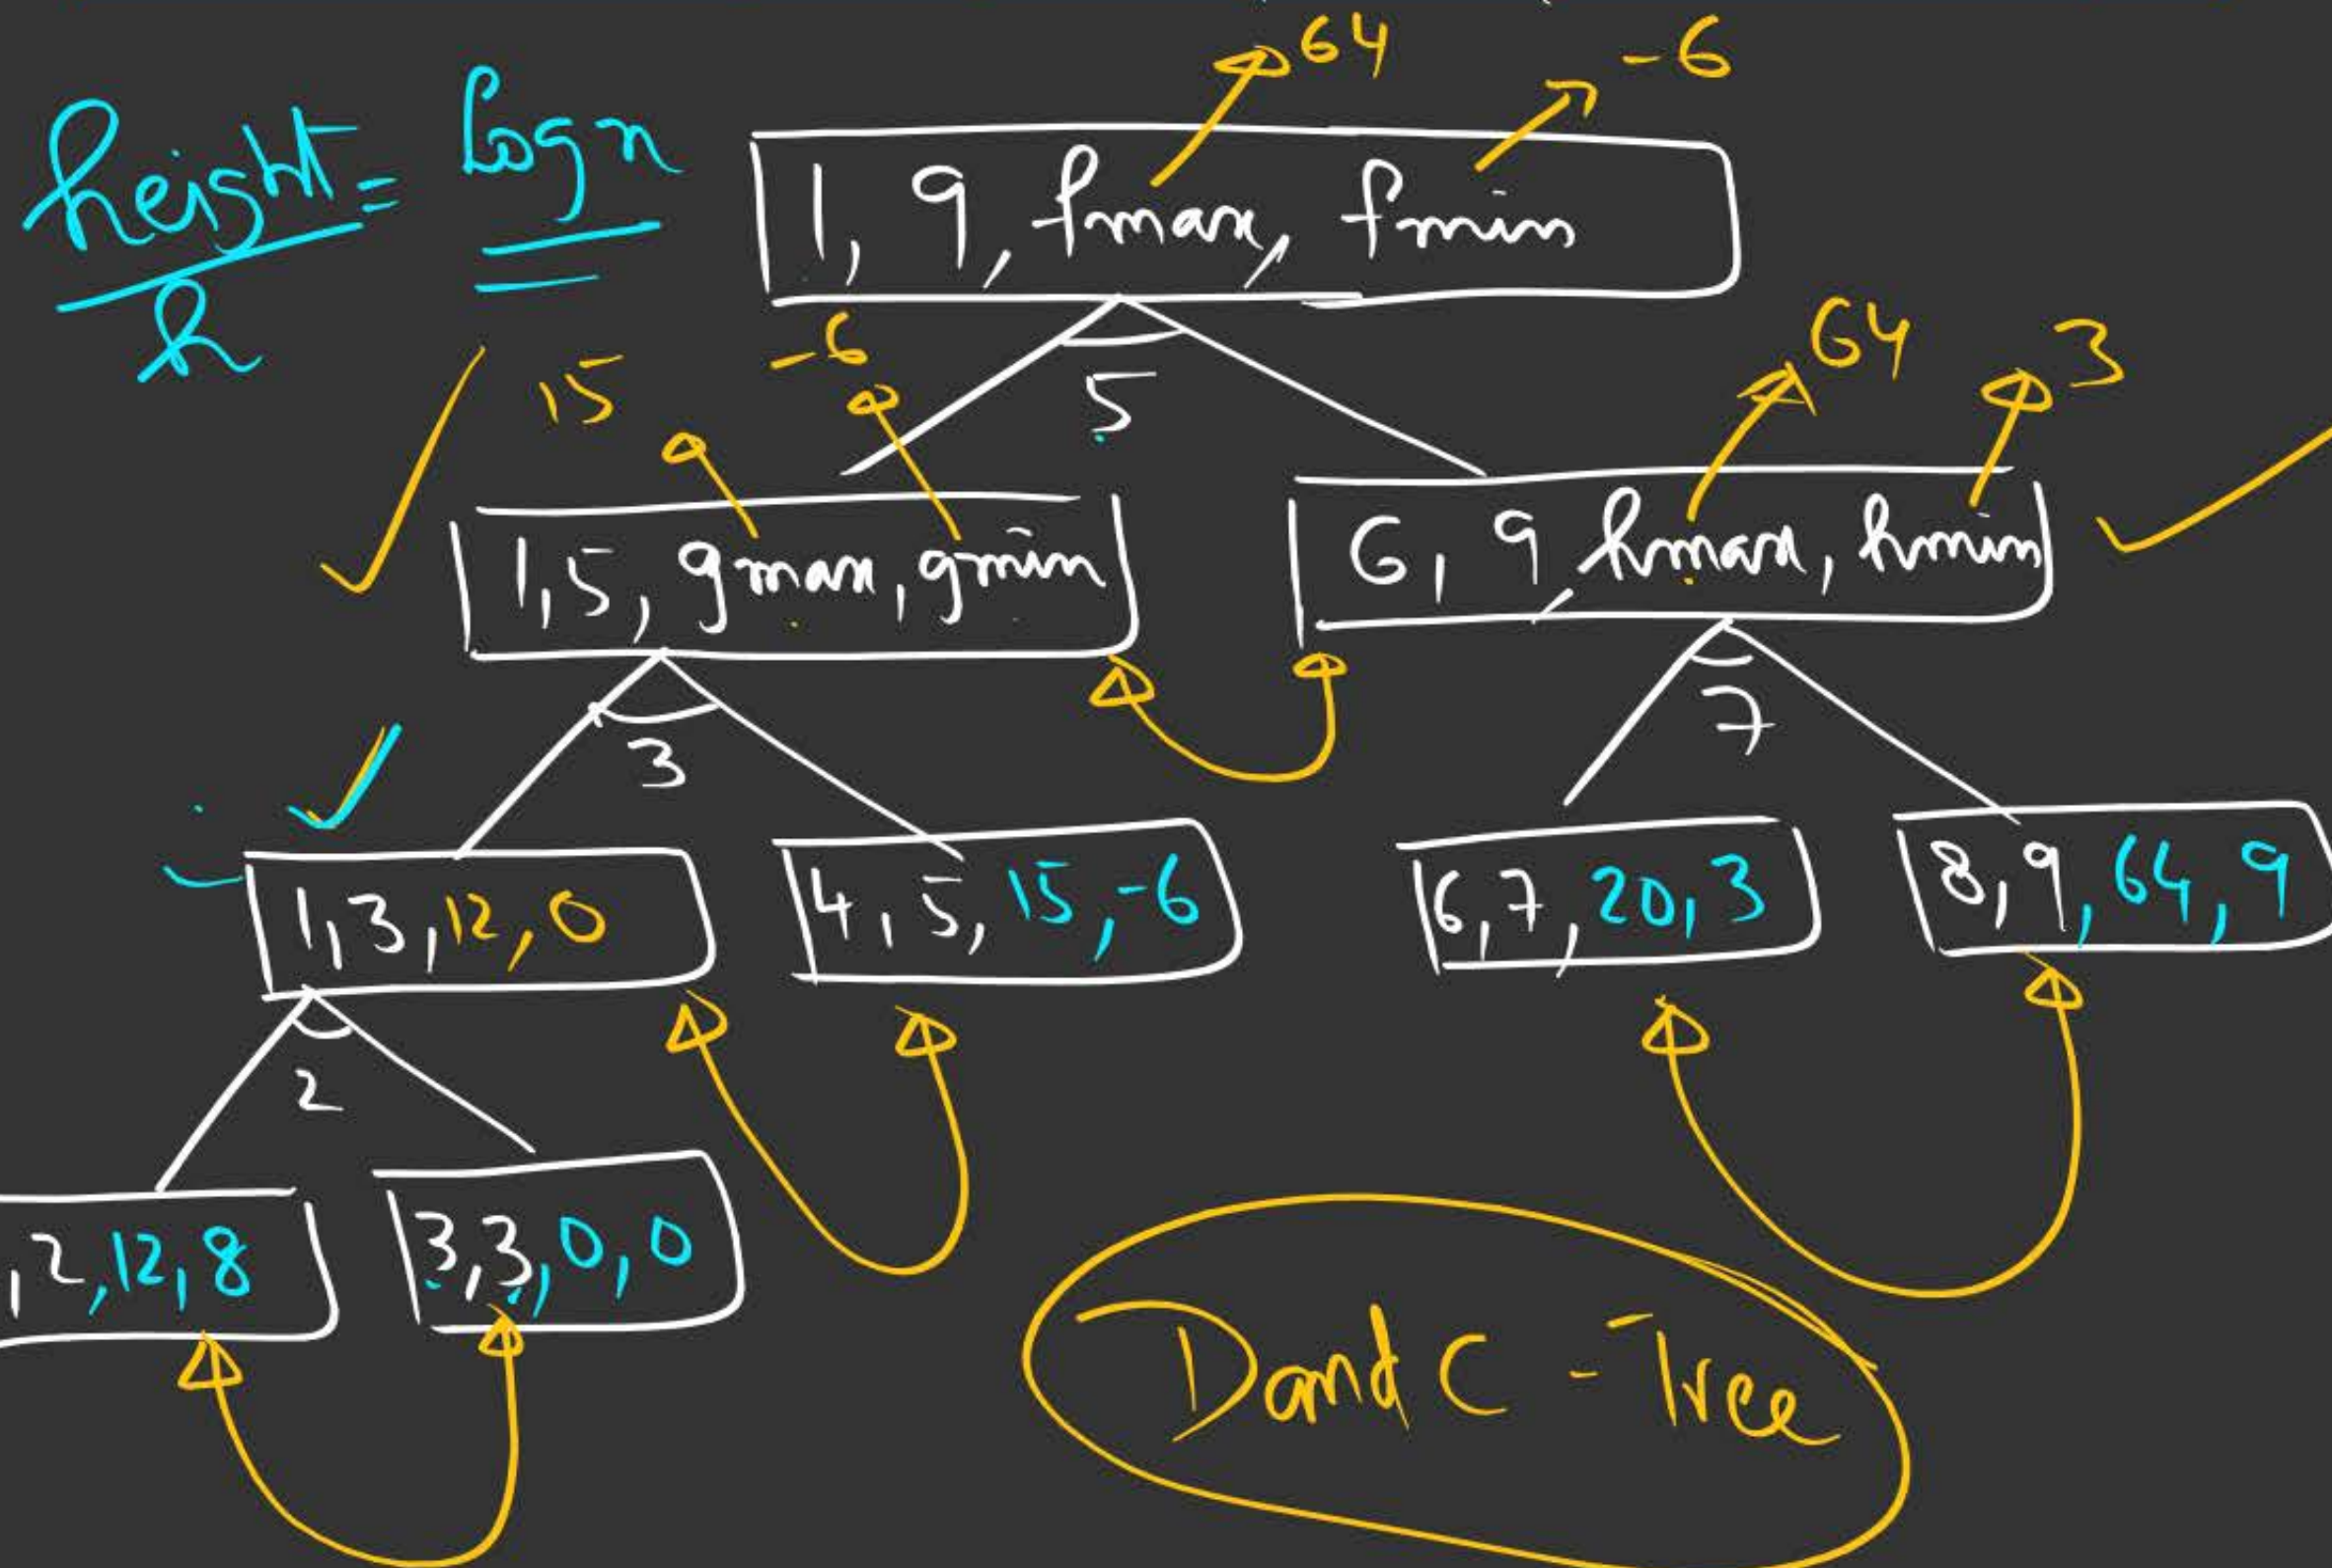 height = log n
h
64
-6
1, 9, fmax, fmin
5
15
-6
64
3
1,5, gmax, gmin
6, 9, hmax, hmin
3
7
1,3,12,0
4,5,15,-6
6,7,20,3
8,9,64,9
2
,2,12,8
3,3,0,0
D and C - Tree